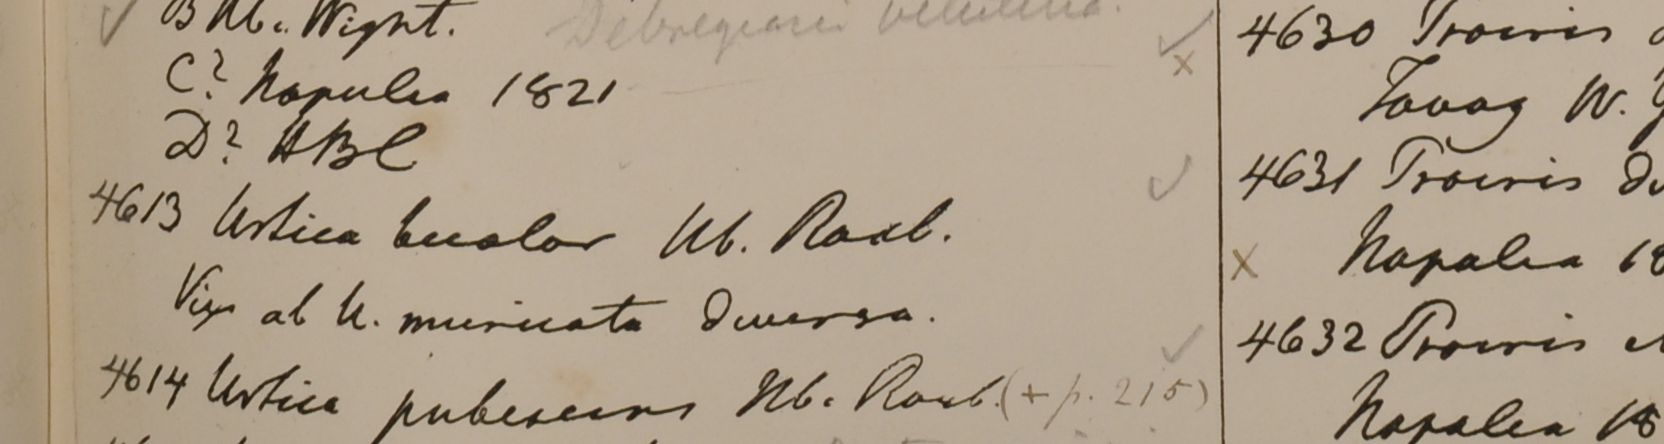 B Hb. Wight. Debregeasia velutina.
C? Napalia 1821
D? HBC
4613 Urtica bicolor Hb. Roxb.
Vix ab U. muricata diversa.
4614 Urtica pubescens Hb. Roxb. (+ p. 215)
4630 Procris
Tavoy W. G
4631 Procris
Napalia 18
4632 Procris
Napalia 18